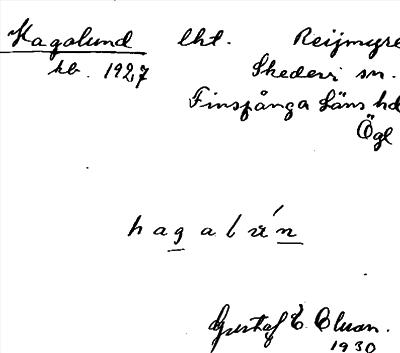 Hagalund lht. Reijmyre
kb. 1927 Skedevi sn.
Finspånga läns hd
Ögl
hagalún
Gustaf E. Cluan.
1930